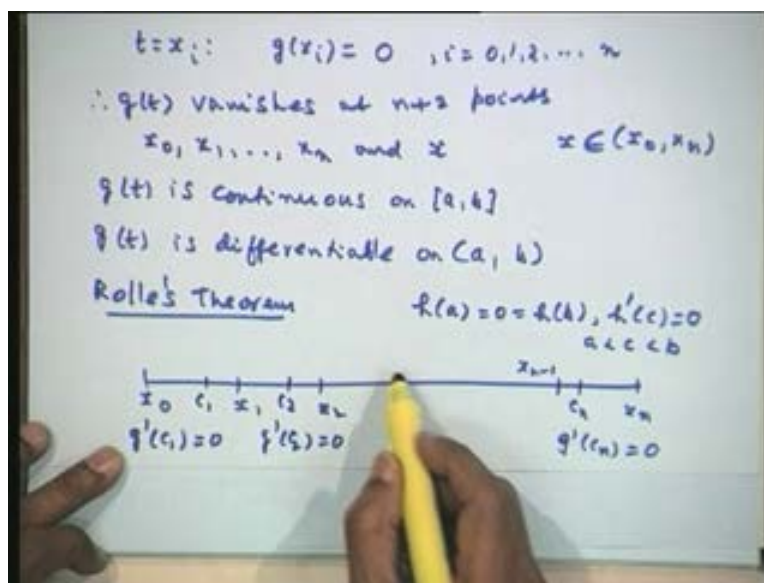 t = xᵢ : g(xᵢ) = 0 , i = 0, 1, 2, ... n
∴ g(t) vanishes at n+2 points
x₀, x₁, ..., xₙ and x x ∈ (x₀, xₙ)
g(t) is continuous on [a, b]
g(t) is differentiable on (a, b)
Rolle's Theorem h(a) = 0 = h(b), h'(c) = 0
a < c < b
xₙ₋₁
x₀ c₁ x₁ c₂ x₂ cₙ xₙ
g'(c₁) = 0 g'(c₂) = 0 g'(cₙ) = 0